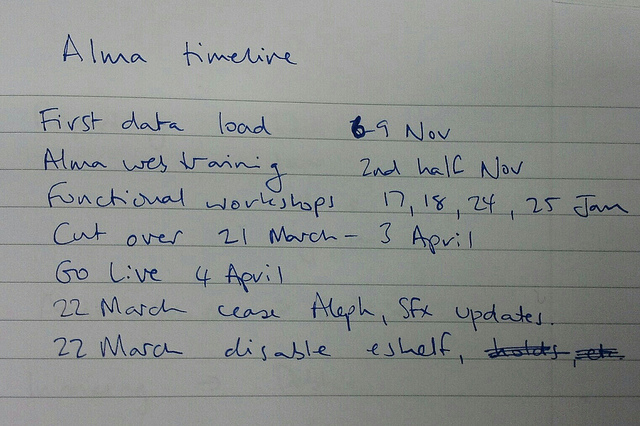 Alma timeline
First data load 6-9 Nov
Alma web training 2nd half Nov
Functional workshops 17, 18, 24, 25 Jan
Cut over 21 March - 3 April
Go Live 4 April
22 March cease Aleph, Sfx updates.
22 March disable eshelf, holds, etc.